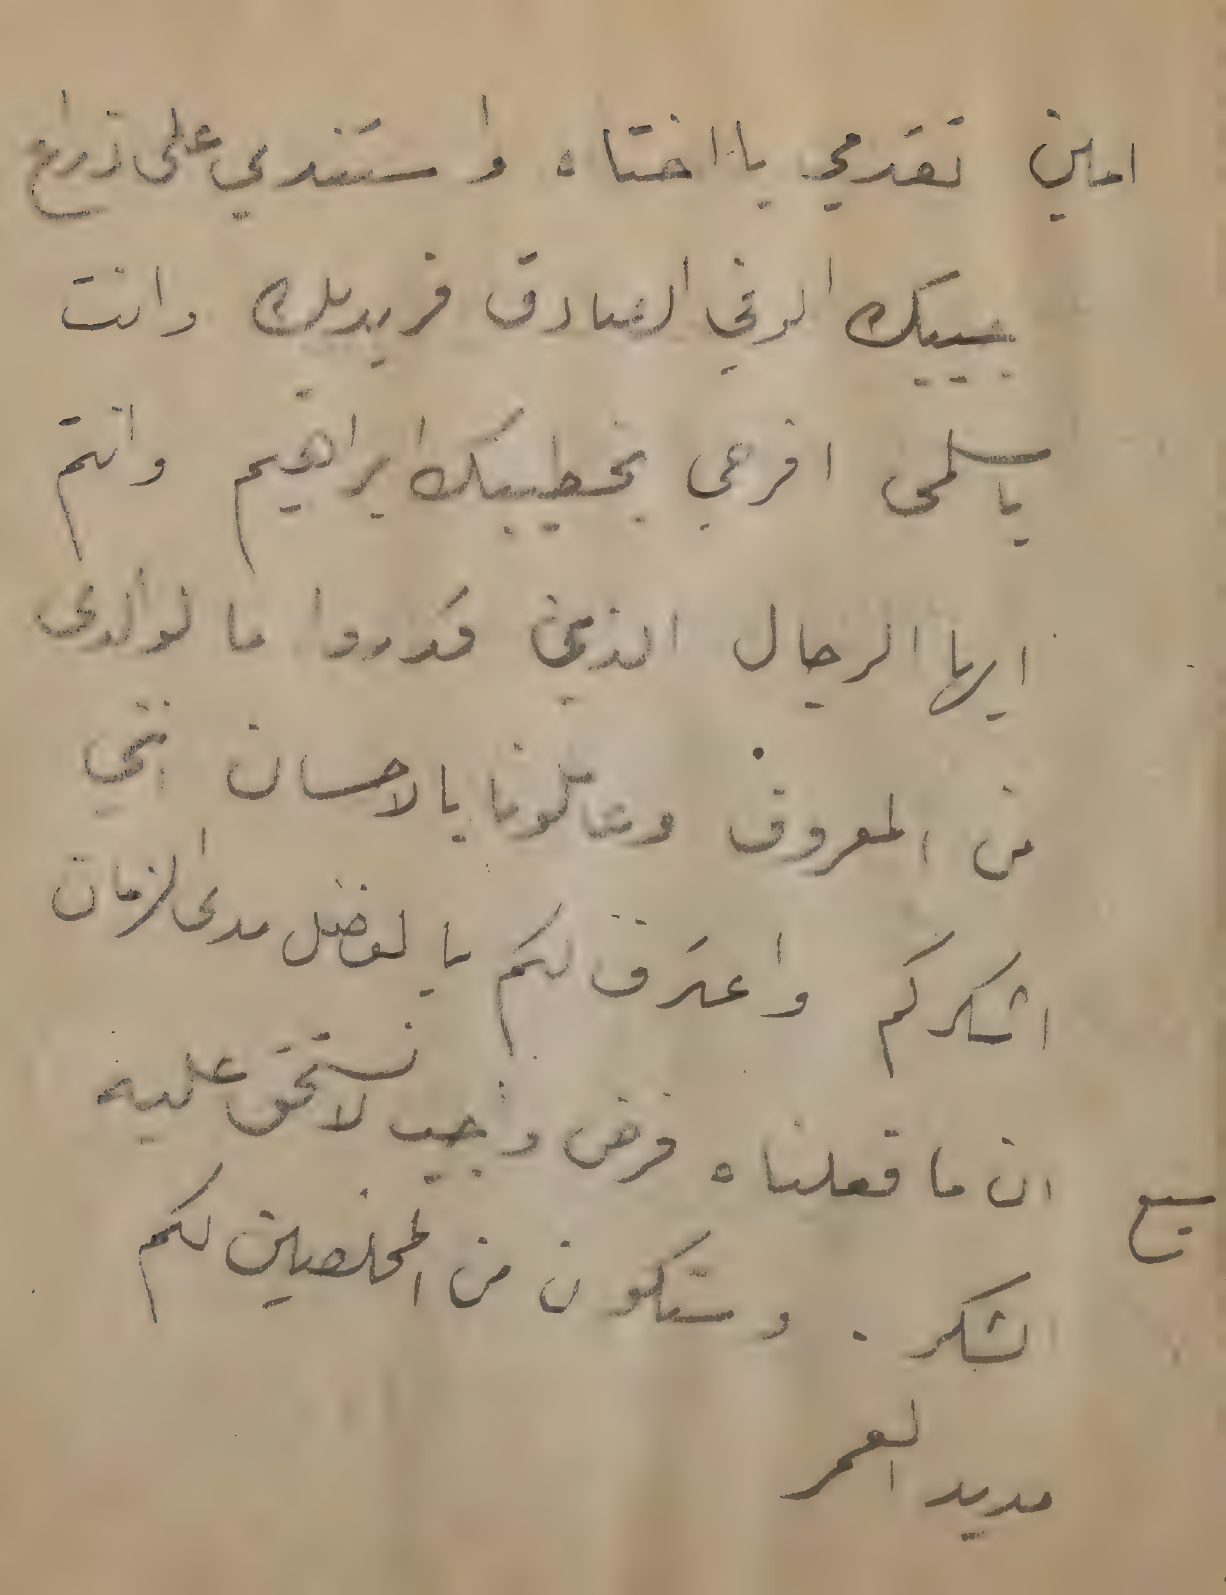 امين تقدمي يا اختاه واستندي على ذراع
حبيبك الوفي الصادق فريدبك وانت
يا سلمى افرحي بخطيبك ابراهيم وانتم
ايها الرجال الذين قدروا ما لوالدي
من المعروف وعاملونا بالاحسان انني
اشكركم واعترف لكم بالفضل مدى الزمان
سبع ان ما فعلناه فرض واجب لا نستحق عليه
الشكر . وستكون من المخلصين لكم
مديد العمر